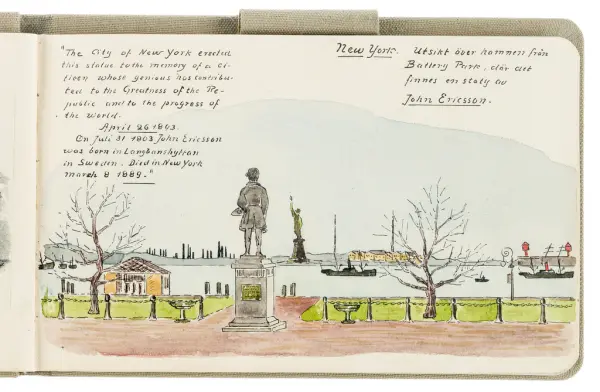 "The City of New York erected
this statue to the memory of a ci-
tizen whose genious has contribu-
ted to the Greatness of the Re-
public and to the progress of
the world.
April 26 1903.
On Juli 31 1803 John Ericsson
was born in Langbanshyttan
in Sweden. Died in New York
march 8 1889."
New York. Utsikt över hamnen från
Battery Park, där det
finnes en staty av
John Ericsson.